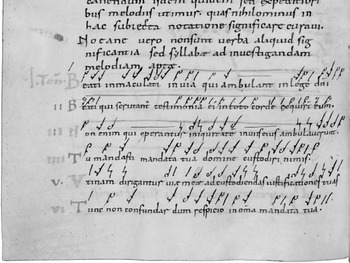 quidem sed expeditiori
bus melodiis utimur quas nihilominus in
hac subiecta notatione significare curavi.
Noeane vero non sunt verba aliquid sig
nificantia sed syllabę ad investigandam
melodiam aptę.
I. Ton. Beati inmaculati in via qui ambulant in lege dni
II Beati qui testimonia in toto corde
Non enim qui operantur iniquitatē in viis eius ambulaverunt.
IIII Tu mandasti mandata tua domine custodiri nimis.
V. Vtinam dirigantur vię meę ad custodiendas iustificationes tuas
VI Tunc non confundar dum respicio in oma mandata tua.